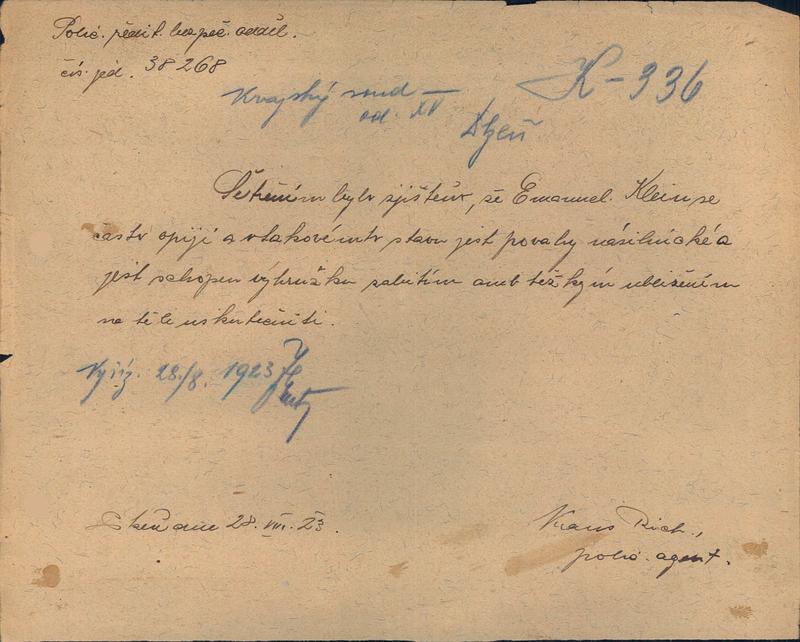 Polic. ředit. bezpeč. odděl.
čís. jed. 38268
K-336
Krajský soud –
od. XV
Plzeň
Šetřením bylo zjištěno, že Emanuel Klein se
často opijí a v takovémto stavu jest povahy násilnické a
jest schopen výhružku zabitím anebo těžkým ublížením
na těle uskutečniti.
Vyříz. 28./8. 1923
Plzeň dne 28. VIII. 23.
Kraus Rich.,
polic. agent.